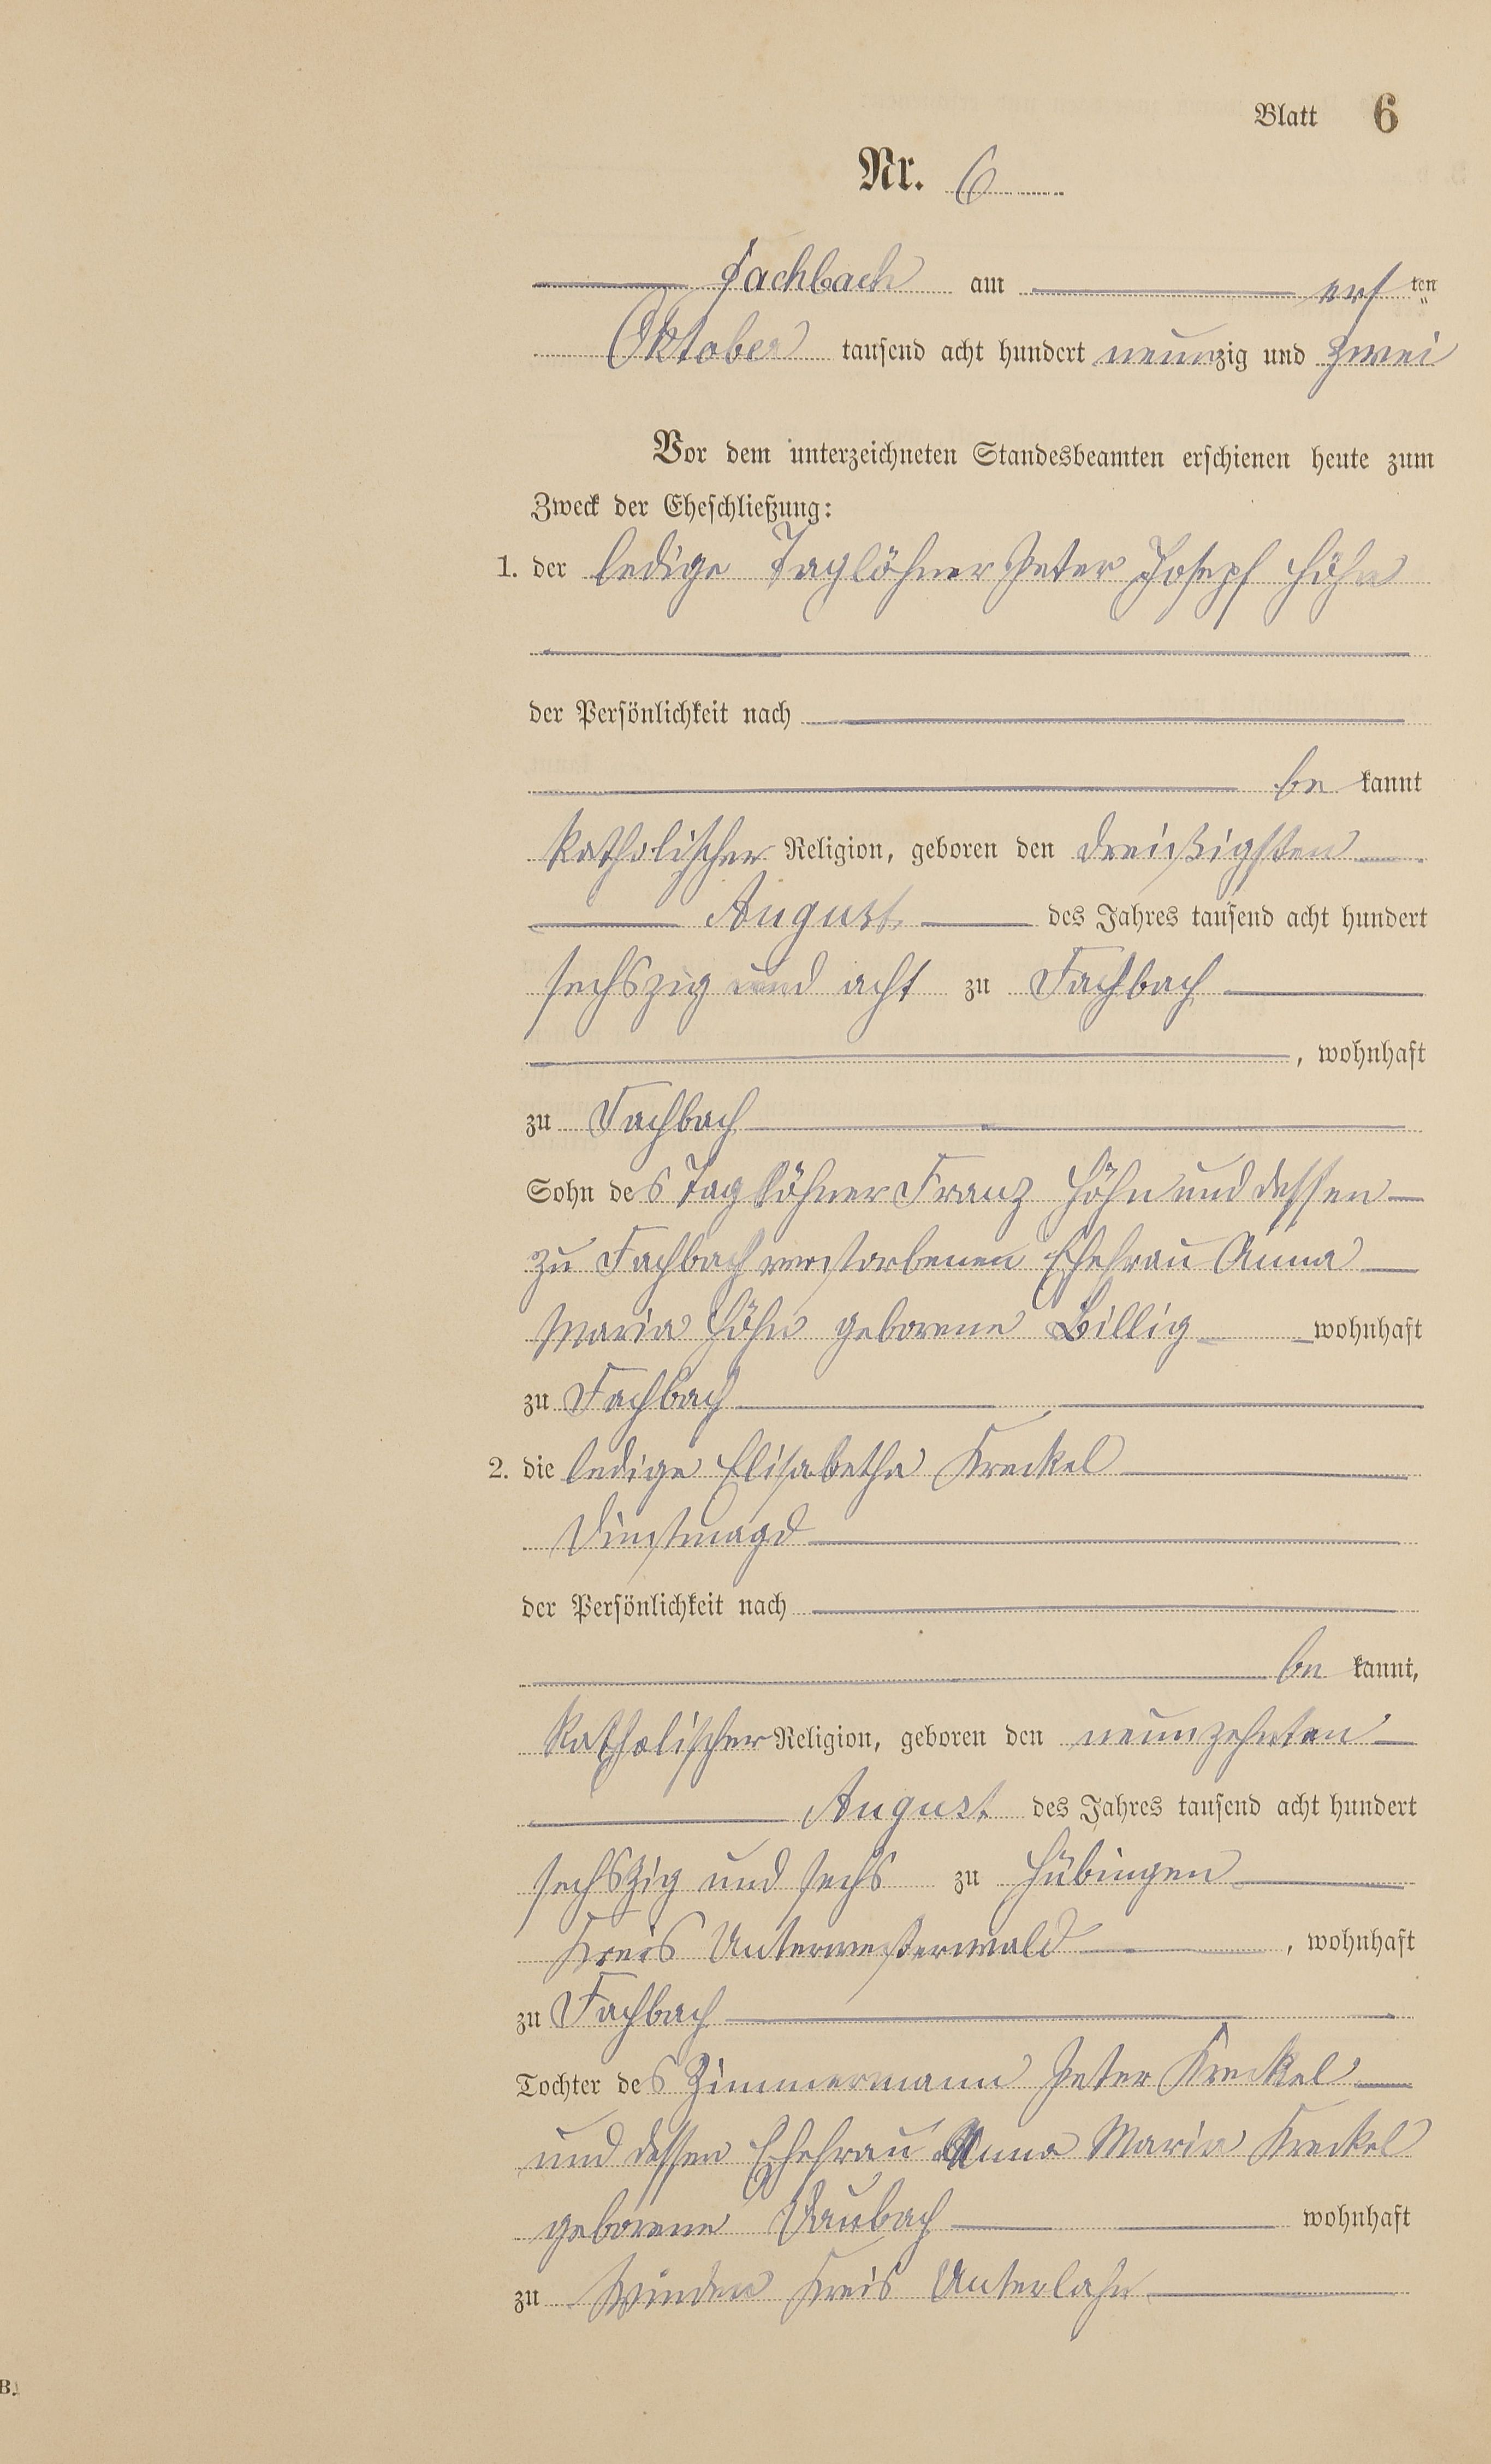 Blatt 6
Nr. 6
Fachbach am ersten
Oktober tausend acht hundert neunzig und zwei
Vor dem unterzeichneten Standesbeamten erschienen heute zum
Zweck der Eheschließung:
1. der ledige Taglöhner Peter Joseph Höhn
der Persönlichkeit nach
be kannt
katholischer Religion, geboren den dreißigsten
August des Jahres tausend acht hundert
sechszig und acht zu Fachbach
, wohnhaft
zu Fachbach
Sohn des Taglöhner Franz Höhn und dessen
zu Fachbach verstorbenen Ehefrau Anna
Maria Höhn geborene Billig wohnhaft
zu Fachbach
2. die ledige Elisabetha Kreckel
Dienstmagd
der Persönlichkeit nach
be kannt,
katholischer Religion, geboren den neunzehnten
August des Jahres tausend acht hundert
sechszig und sechs zu Hübingen
Kreis Unterwesterwald, wohnhaft
zu Fachbach
Tochter des Zimmermann Peter Kreckel
und dessen Ehefrau Anna Maria Kreckel
geborene Daubach wohnhaft
zu Winden Kreis Unterlahn
B.